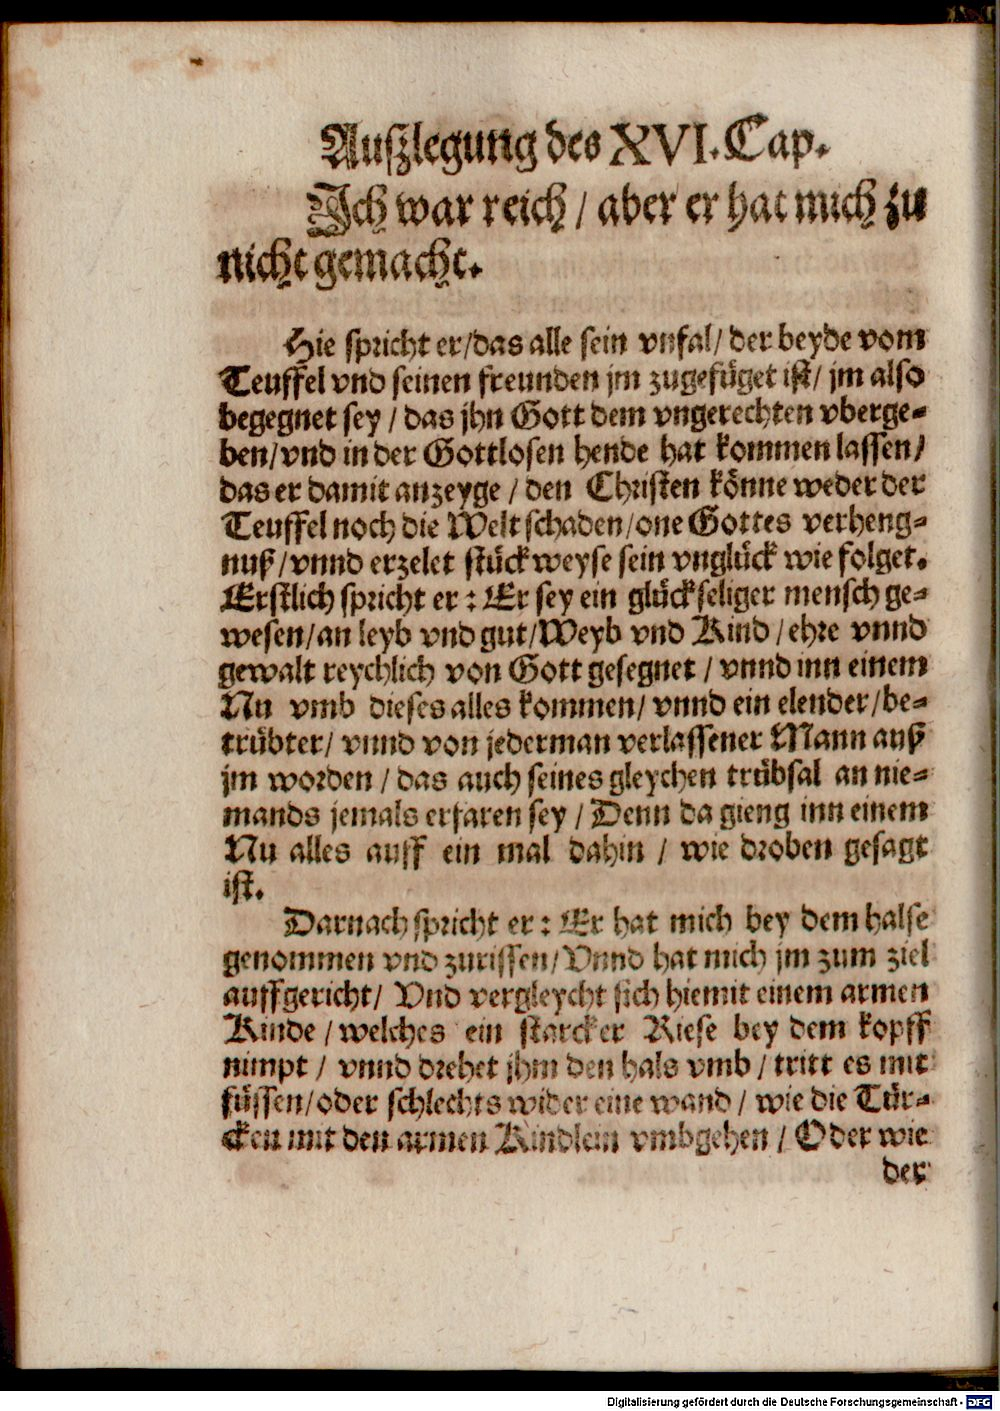 Auszlegung des XVI. Cap.
Ich war reich / aber er hat mich zu
nicht gemacht.
Hie spricht er/das alle sein vnfal/ der beyde vom
Teuffel vnd seinen freunden jm zugefüget ist/ jm also
begegnet sey / das jhn Gott dem vngerechten vberge-
ben/vnd in der Gottlosen hende hat kommen lassen/
das er damit anzeyge / den Christen könne weder der
Teuffel noch die Welt schaden/one Gottes verheng-
nuß/vnnd erzelet stückweyse sein vnglück wie folget.
Erstlich spricht er : Er sey ein glückseliger mensch ge-
wesen/an leyb vnd gut/Weyb vnd Kind/ehre vnnd
gewalt reychlich von Gott gesegnet / vnnd inn einem
Nu vmb dieses alles kommen/ vnnd ein elender/be-
trübter/ vnnd von jederman verlassener Mann auß
jm worden / das auch seines gleychen trübsal an nie-
mands jemals erfaren sey / Denn da gieng inn einem
Nu alles auff ein mal dahin / wie droben gesagt
ist.
Darnach spricht er : Er hat mich bey dem halse
genommen vnd zurissen/Vnnd hat mich jm zum ziel
auffgericht/ Vnd vergleycht sich hiemit einem armen
Kinde / welches ein starcker Riese bey dem kopff
nimpt / vnnd drehet jhm den hals vmb / tritt es mit
füssen/oder schlechts wider eine wand / wie die Tür-
cken mit den armen Kindlein vmbgehen / Oder wie
der
Digitalisierung gefördert durch die Deutsche Forschungsgemeinschaft - DFG